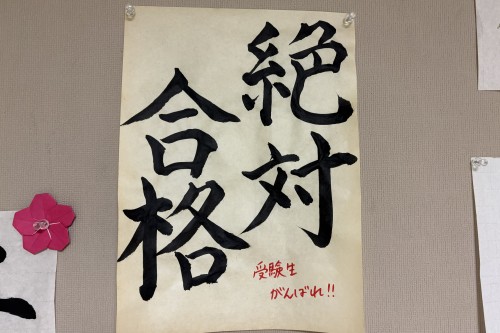 絶対
合格
受験生
がんばれ!!